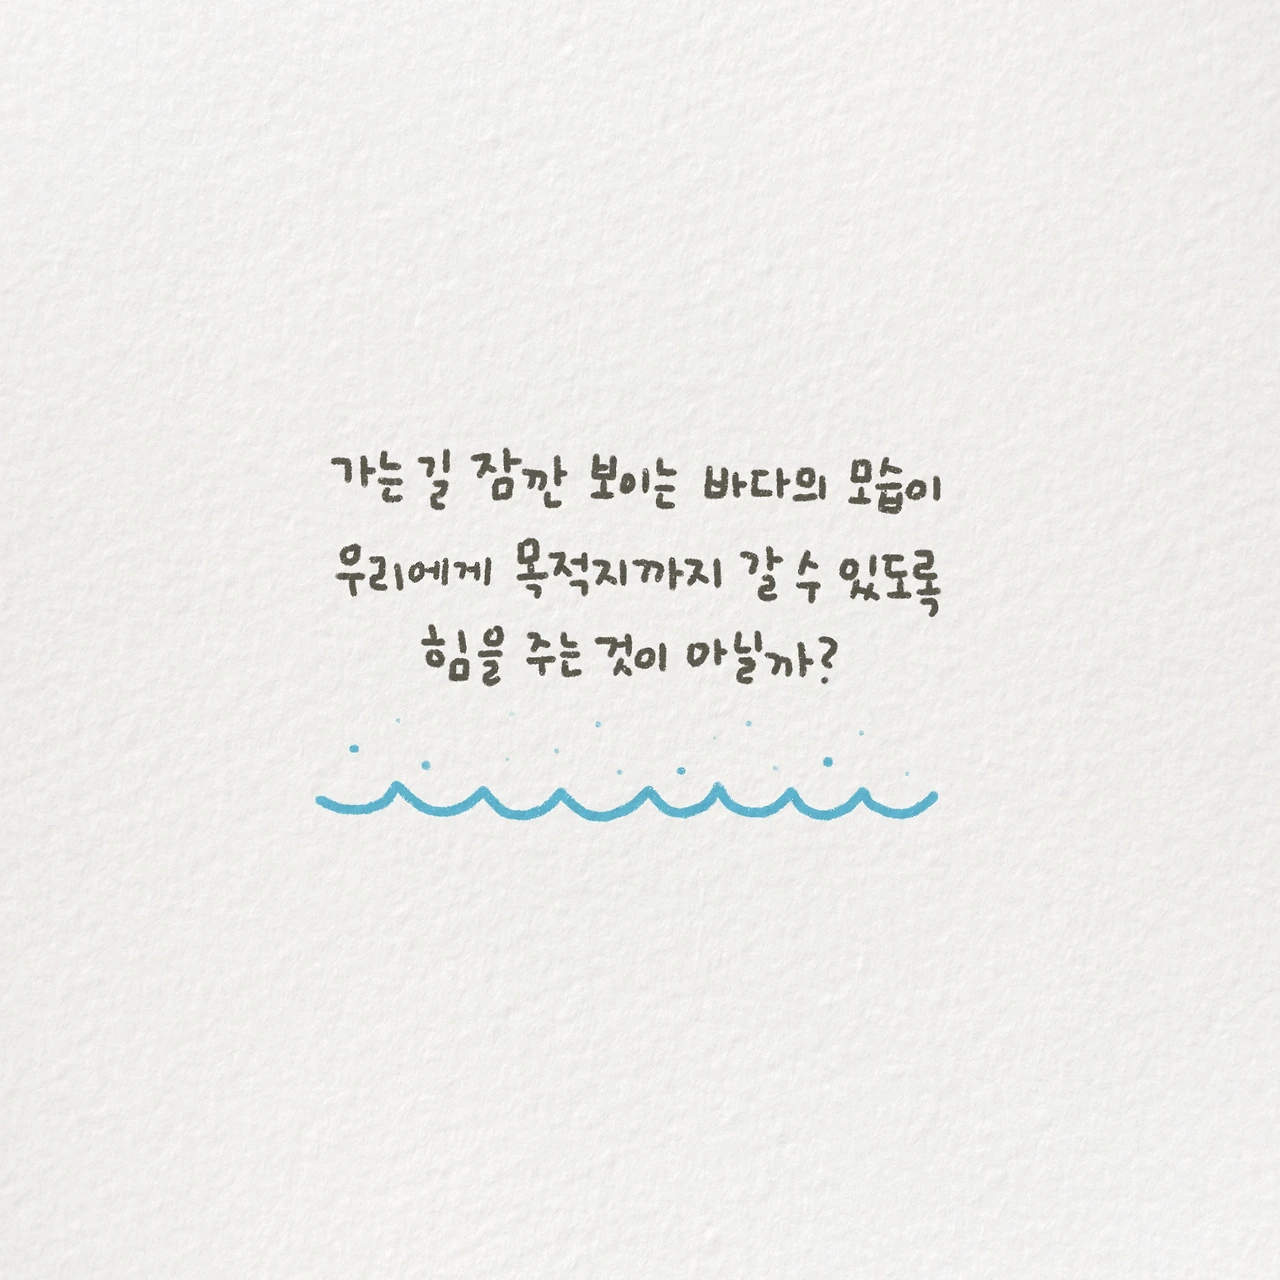 가는길 잠깐 보이는 바다의 모습이
우리에게 목적지까지 갈 수 있도록
힘을 주는 것이 아닐까?